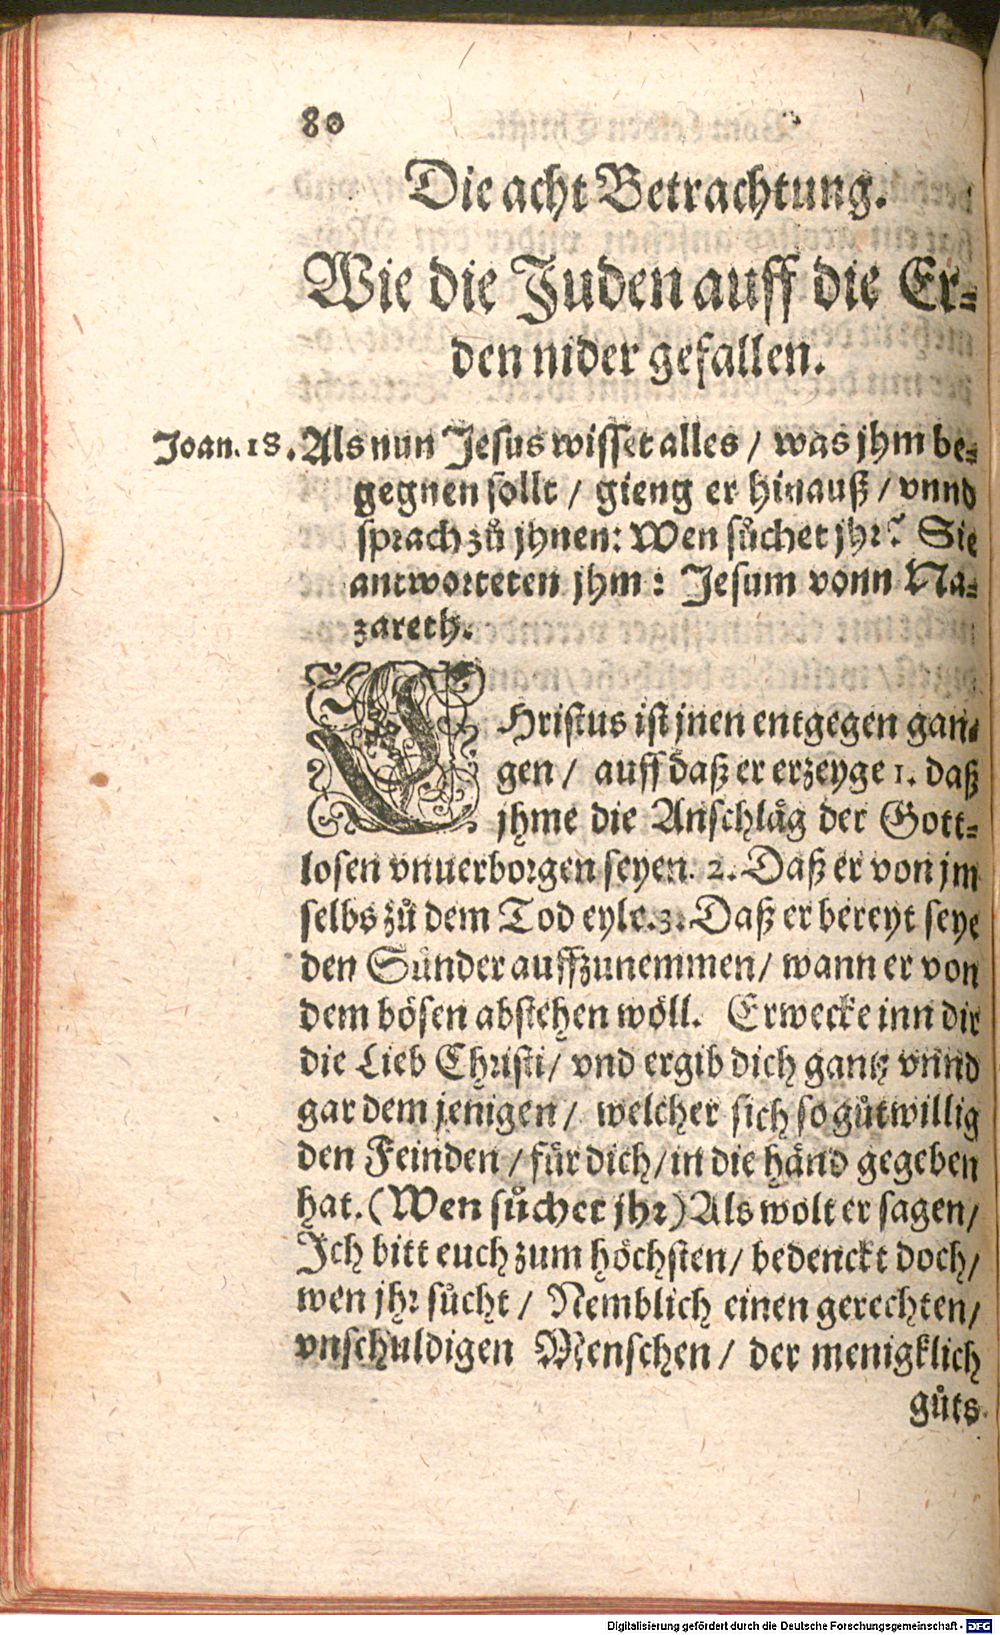 80
Die acht Betrachtung.
Wie die Juden auff die Er-
den nider gefallen.
Joan. 18. Als nun Jesus wisset alles / was jhm be-
gegnen sollt / gieng er hinauß / vnnd
sprach zů jhnen: Wen sůchet jhr? Sie
antworteten jhm: Jesum vonn Na-
zareth.
CHristus ist jnen entgegen gan-
gen / auff daß er erzeyge 1. daß
jhme die Anschläg der Gott-
losen vnuerborgen seyen. 2. Daß er von jm
selbs zů dem Tod eyle. 3. Daß er bereyt seye
den Sünder auffzunemmen / wann er von
dem bösen abstehen wöll. Erwecke inn dir
die Lieb Christi / vnd ergib dich gantz vnnd
gar dem jenigen / welcher sich so gůtwillig
den Feinden / für dich / in die händ gegeben
hat. (Wen sůchet jhr) Als wolt er sagen /
Ich bitt euch zum höchsten / bedenckt doch /
wen jhr sůcht / Nemblich einen gerechten /
vnschuldigen Menschen / der menigklich
gůts
Digitalisierung gefördert durch die Deutsche Forschungsgemeinschaft - DFG